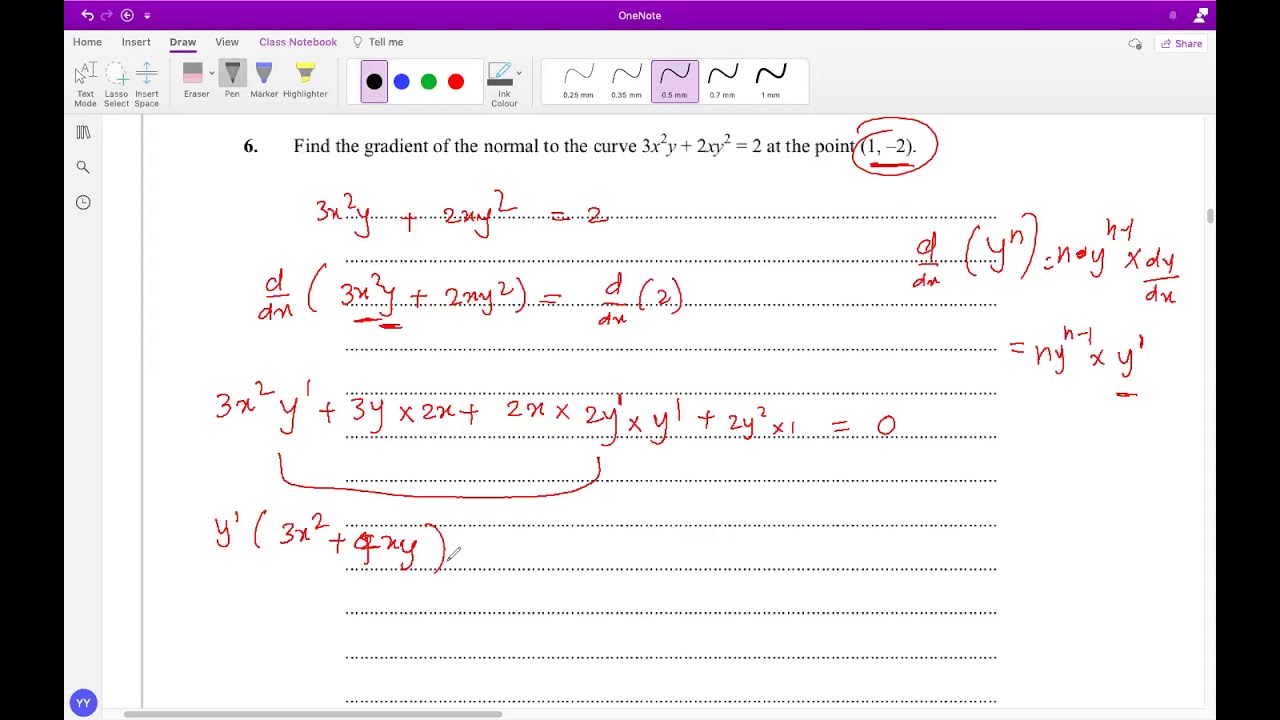 OneNote
Home Insert Draw View Class Notebook Tell me Share
Text Mode Lasso Select Insert Space Eraser Pen Marker Highlighter Ink Colour 0.25 mm 0.35 mm 0.5 mm 0.7 mm 1 mm
6. Find the gradient of the normal to the curve 3x²y + 2xy² = 2 at the point (1, –2).
3x²y + 2xy² = 2
d/dx (yⁿ) = n·yⁿ⁻¹ × dy/dx
d/dx (3x²y + 2xy²) = d/dx (2)
= nyⁿ⁻¹ × y'
3x² y' + 3y × 2x + 2x × 2y¹ × y' + 2y² × 1 = 0
y' (3x² + 4xy)
YY